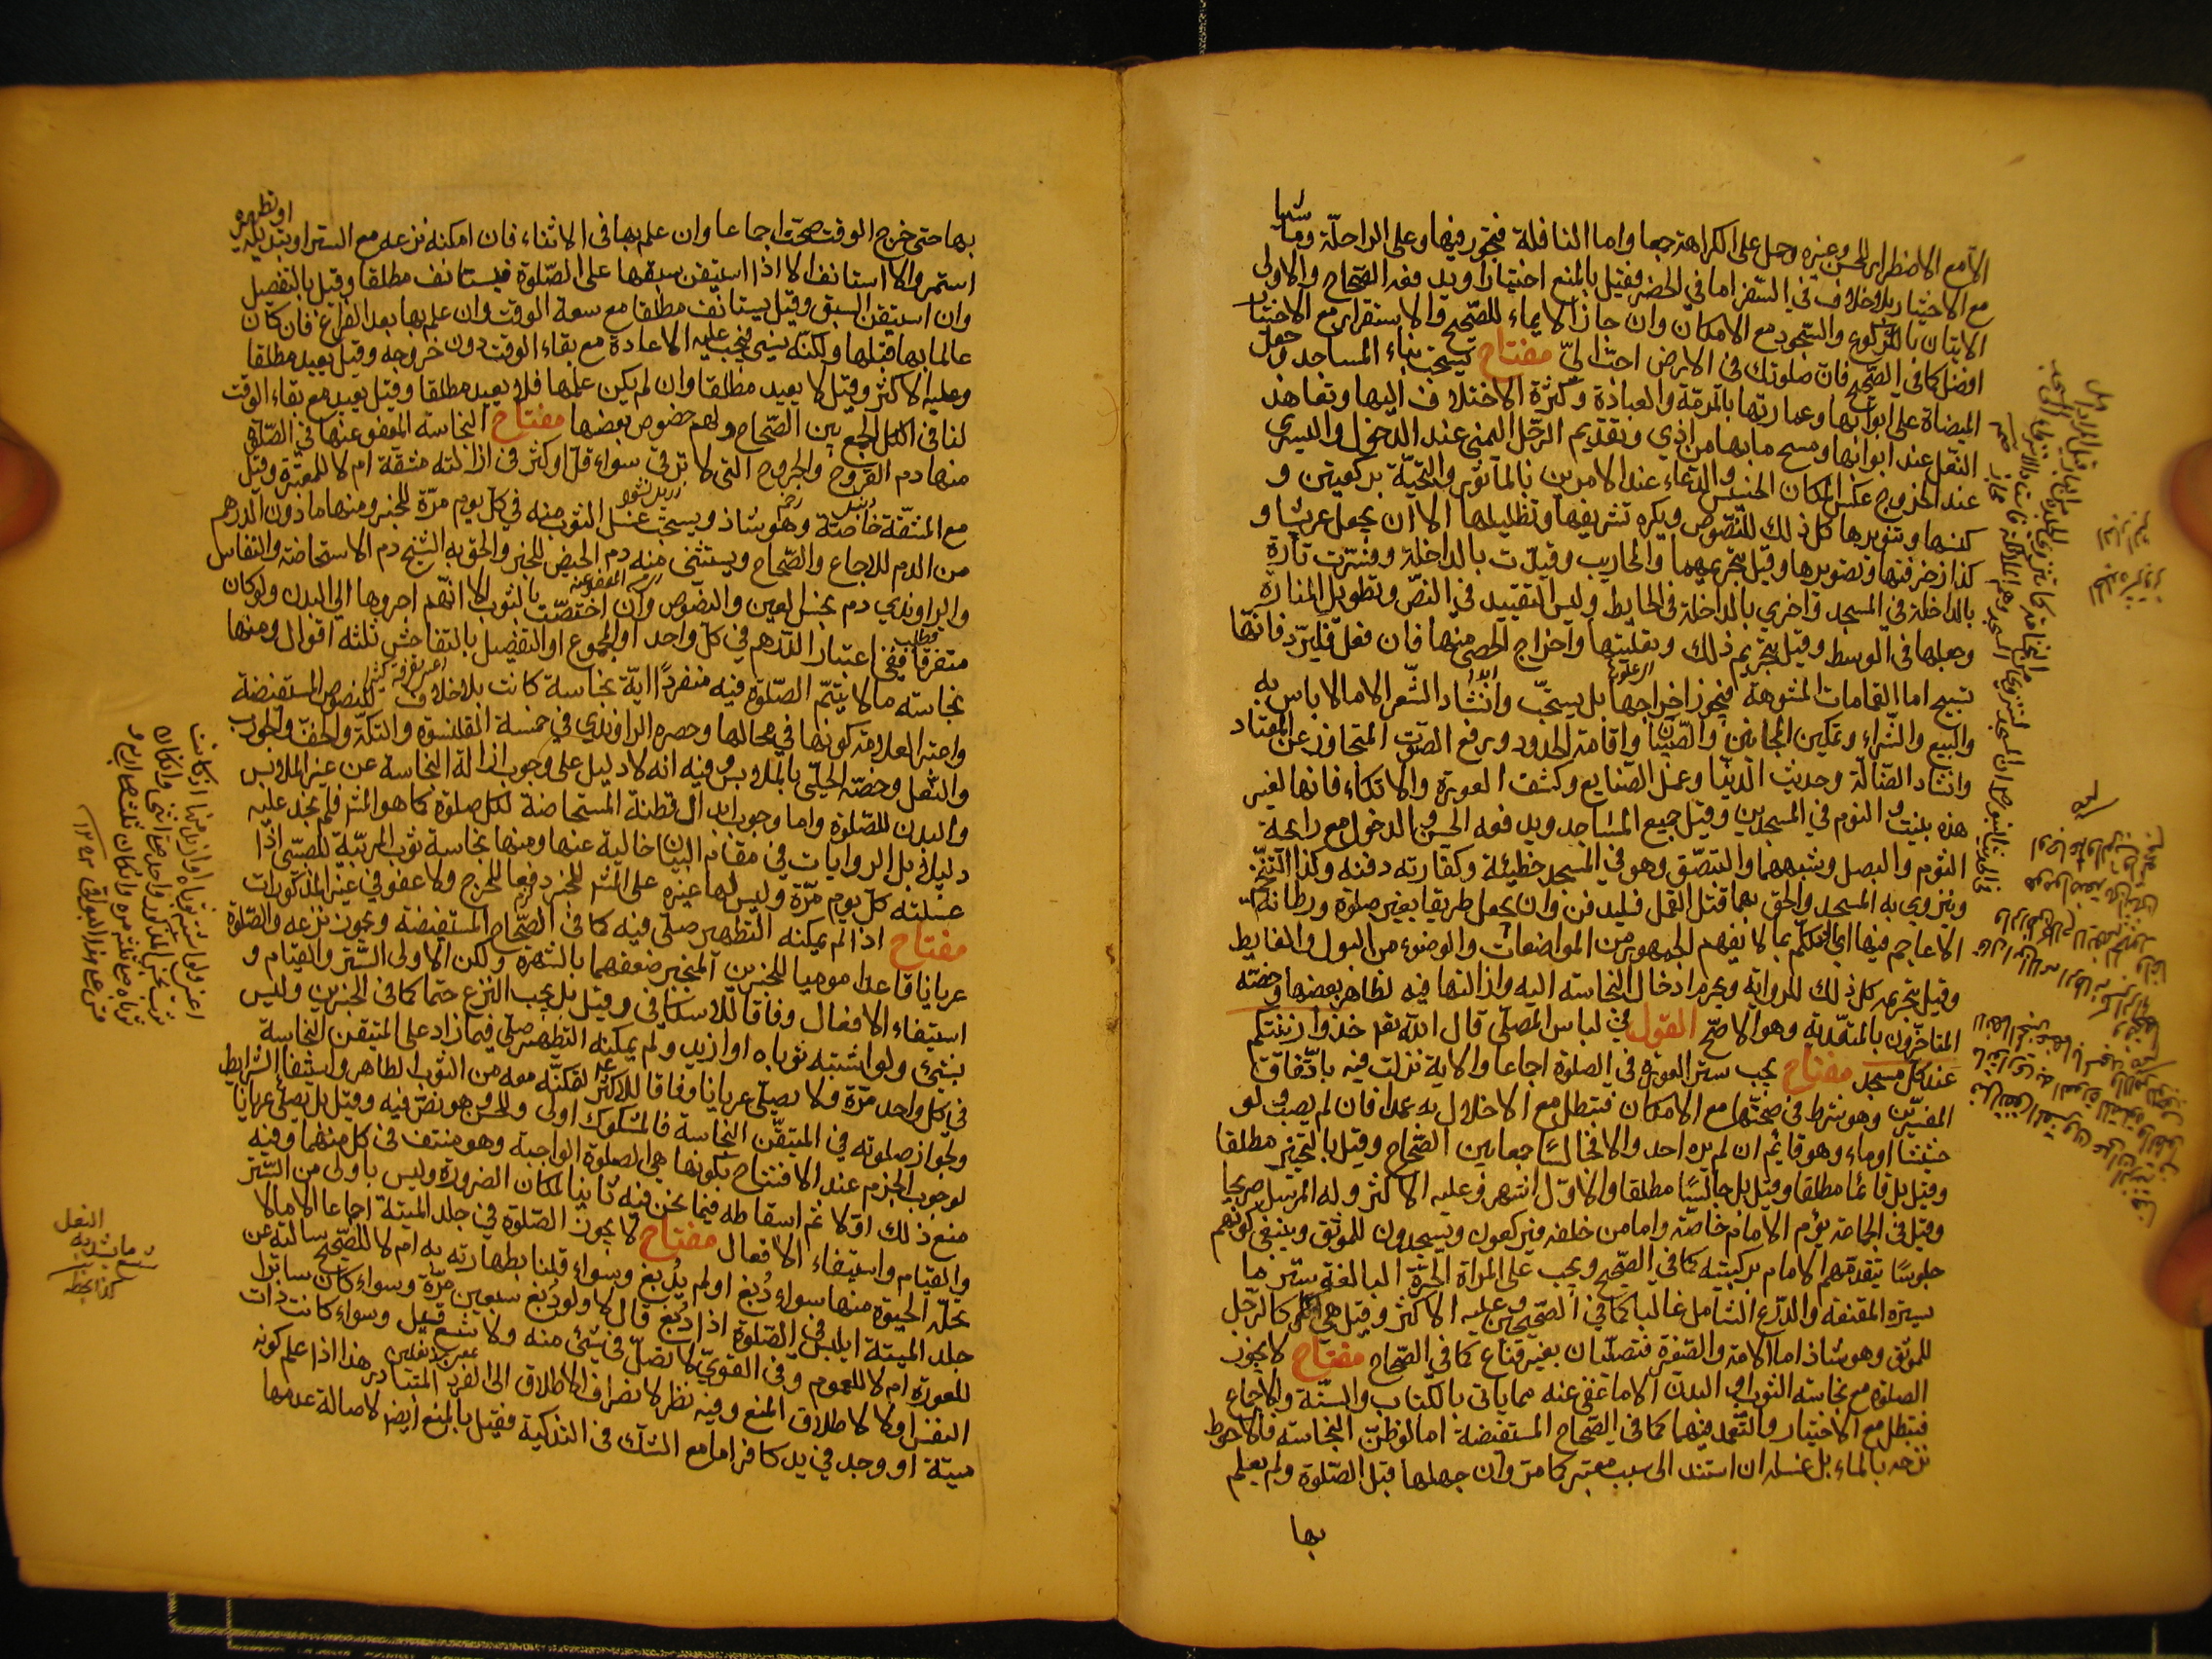 الا مع الاضطرار للحسن وغيره وحمل على الكراهة جمعا واما النافلة فتجوز فيها وعلى الراحلة وماشيا
مع الاختيار بلا خلاف في السفر اما في الحضر فقيل بالمنع اختيارا ويدفعه الصحاح والاولى
الاتيان بالركوع والسجود مع الامكان وان جاز الايماء للصحيح والاستقرار مع الاختيار
افضل كما في الصحيح فان صلوتك في الارض احب الي مفتاح يستحب بناء المساجد وجعل
الميضاة على ابوابها وعمارتها بالمرمة والعبادة وكثرة الاختلاف اليها وتعاهد
النعل عند ابوابها ومسح ما بها من اذي وتقديم الرجل اليمنى عند الدخول واليسرى
عند الخروج عكس المكان الخسيس والدعاء عند الامرين بالمأثور والتحية بركعتين و
كنسها وتنويرها كل ذلك للنصوص ويكره تشريفها وتظليلها الا ان يجعل عريشا و
كذا زخرفتها وتصويرها وقيل بتحريمهما والمحاريب وقيدت بالداخلة وفسرت تارة
بالداخلة في المسجد واخرى بالداخلة في الحايط وليس التقييد في النص وتطويل المنارة
وجعلها في الوسط وقيل بتحريم ذلك وتعليتها واخراج الحصى منها فان فعل فليرد فانها
تسبح اما القمامات المشوهة فيجوز اخراجها بل يستحب وانشاد الشعر الا ما لا باس به
والبيع والشراء وتمكين المجانين والصبيان واقامة الحدود ورفع الصوت المتجاوز عن المعتاد
وانشاد الضالة وحديث الدنيا وعمل الصنايع وكشف العورة والاتكاء فانها لغير
هذه بنيت والنوم في المسجدين وقيل جميع المساجد ويدفعه الحسن والدخول مع رايحة
الثوم والبصل وشبههما والتبصق وهو في المسجد خطيئة وكفارته دفنه وكذا التنخم
وينزوي به المسجد والحق بهما قتل القمل فليدفن وان يجعل طريقا بغير صلوة ورطانة
الاعاجم فيها اي التكلم بما لا يفهم الجمهور من المواضعات والوضوء من البول والغايط
وقيل بتحريم كل ذلك للرواية ويحرم ادخال النجاسة اليه وازالتها فيه لظاهر بعضها وخصه
المتاخرون بالمتعدية وهو الاصح القول في لباس المصلي قال الله تعم خذوا زينتكم
عند كل مسجد مفتاح يجب ستر العورة في الصلوة اجماعا والاية نزلت فيه باتفاق
المفسرين وهو شرط في صحتها مع الامكان فتبطل مع الاخلال به عمدا فان لم يصب ولو
حشيشا اوماء وهو قائم ان لم يره احد والا فجالسا جمعا بين الصحاح وقيل بالتخيير مطلقا
وقيل بل قائما مطلقا وقيل بل جالسا مطلقا والاول اشهر وعليه الاكثر وله المرسل صريحا
وقيل في الجماعة يؤم الامام خاصة واما من خلفه فيركعون ويسجدون للموثق وينبغي كونهم
جلوسا يتقدمهم الامام بركبتيه كما في الصحيح ويجب على المراة الحرة البالغة ستر ما
سيتره المقنعة والدرع الشامل غالبا كما في الصحيحين وعليه الاكثر وقيل هي كالرجل
للموثق وهو شاذ اما الامة والصغيرة فتصليان بغير قناع كما في الصحاح مفتاح لا يجوز
الصلوة مع نجاسة الثوب او البدن الا ما عفي عنه مما ياتي بالكتاب والسنة والاجماع
فتبطل مع الاختيار والتعمد فيهما كما في الصحاح المستفيضة اما لو ظن النجاسة فالاحوط
نزحه بالماء بل غسله ان استند الى سبب معتبر كما مر وان جهلها قبل الصلوة ولم يعلم
بها
بها حتى خرج الوقت صحت اجماعا وان علم بها في الاثناء فان امكنه نزعه مع الستر او تبديله او تطهيره
استمر والا استانف الا اذا استيقن سبقها على الصلوة فيستانف مطلقا وقيل بالتفصيل
وان استيقن السبق وقيل يستانف مطلقا مع سعة الوقت وان علم بها بعد الفراغ فان كان
عالما بها قبلها ولكنه نسي فيجب عليه الاعادة مع بقاء الوقت دون خروجه وقيل يعيد مطلقا
وعليه الاكثر وقيل لا يعيد مطلقا وان لم يكن علمها فلا يعيد مطلقا وقيل يعيد مع بقاء الوقت
لنا في الكل الجمع بين الصحاح ولهم خصوص بعضها مفتاح النجاسة المعفو عنها في الصلوة
منها دم القروح والجروح التي لا ترقى سواء قل او كثر في ازالته مشقة ام لا للمعتبرة وقيل
مع المشقة خاصة وهو شاذ ويستحب غسل الثوب منه في كل يوم مرة للخبر ومنها ما دون الدرهم
من الدم للاجماع والصحاح ويستثنى منه دم الحيض للخبر والحق به الشيخ دم الاستحاضة والنفاس
والراوندي دم نجس العين والنصوص وان اختصت بالثوب الا انهم اجروها الى البدن ولو كان
متفرقا ففي اعتبار الدرهم في كل واحد او المجموع او التفصيل بالتفاحش ثلثة اقوال ومنها
نجاسته ما لا يتم الصلوة فيه منفردا اية نجاسة كانت بلا خلاف للنصوص المستفيضة
واعتبر العلامة كونها في محالها وحصره الراوندي في خمسة القلنسوة والتكة والخف والجورب
والنعل وخصه الحلي بالملابس وفيه انه لا دليل على وجوب ازالة النجاسة عن غير الملابس
والبدن للصلوة واما وجوب ابدال قطنة المستحاضة لكل صلوة كما هو المشهر فلم نجد عليه
دليلا بل الروايات في مقام البيان خالية عنها ومنها نجاسة ثوب المربية للصبي اذا
غسلته كل يوم مرة وليس لها غيره على المشهر للخبر دفعا للحرج ولا عفو في غير المذكورات
مفتاح اذا لم يمكنه التطهير صلى فيه كما في الصحاح المستفيضة ويجوز نزعه والصلوة
عريانا قاعدا موميا للخبرين المنجبر ضعفهما بالشهرة ولكن الاولى الستر والقيام و
استيفاء الافعال وفاقا للاسكافي وقيل بل يجب النزع حتما كما في الخبرين وليس
بشيء ولو اشتبه ثوباه او ازيد ولم يمكنه التطهير صلى فيما زاد على المتيقن النجاسة
في كل واحد مرة ولا يصلي عريانا وفاقا للاكثر لتمكنه معه من الثوب الطاهر واستيفاء الشرايط
ولجواز صلوته في المتيقن النجاسة فالمشكوك اولى وللحسن وهو نص فيه وقيل بل يصلي عريانا
لوجوب الجزم عند الافتتاح بكونها هي الصلوة الواجبة وهو منتف في كل منهما وفيه
منع ذلك اولا ثم اسقاطه فيما نحن فيه ثانيا لمكان الضرورة وليس باولى من الستر
والقيام واستيفاء الافعال مفتاح لا يجوز الصلوة في جلد الميتة اجماعا الا ما لا
تحله الحيوة منها سواء دبغ او لم يدبغ وسواء قلنا بطهارته به ام لا للصحيح سالته عن
جلد الميتة ايلبس في الصلوة اذا دبغ قال لا ولو دبغ سبعين مرة وسواء كان ساترا
للعورة ام لا للعموم وفي القوي لا تصل في شيء منه ولا شسع قيل وسواء كانت ذات
النفس او لا لاطلاق المنع وفيه نظر لانصراف الاطلاق الى الفرد المتبادر هذا اذا علم كونه
ميتة او وجد في يد كافر اما مع الشك في التذكية فقيل بالمنع ايضا لاصالة عدمها